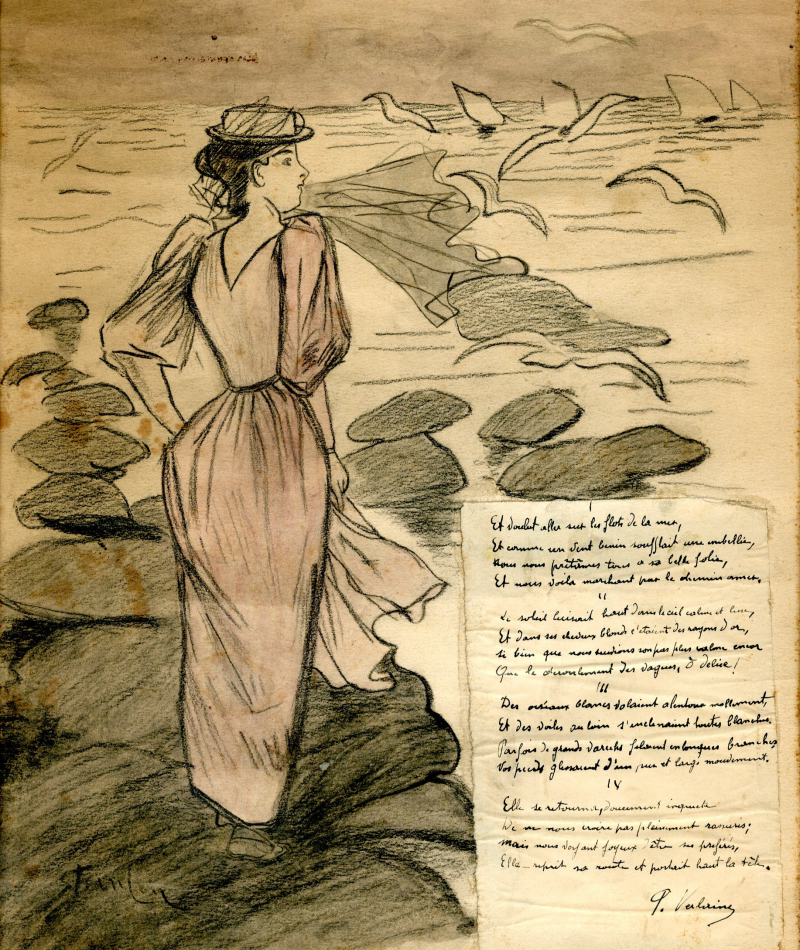 I
Et voulut aller sur les flots de la mer,
Et comme un vent benin soufflait une embellie,
Nous nous prêtâmes tous a sa belle folie,
Et nous voila marchant par le chemin amer.
II
Le soleil luisait haut dans le ciel calme et
Et dans ses cheveux blonds c'étaient des rayons d'or,
Si bien que nous suivions son pas plus calme encor
Que le déroulement des vagues, ô délice!
III
Des oiseaux blancs volaient alentour mollement,
Et des voiles au loin s'inclinaient toutes blanches.
Parfois de grands varechs filaient en longues branches
Nos pieds glissaient d'un pur et large mouvement.
IV
Elle se retourna, doucement inquiete
De ne nous croire pas pleinement rassures;
mais nous voyant joyeux d'être ses préférés,
Elle reprit sa route et portait haut la tête.
P. Verlaine